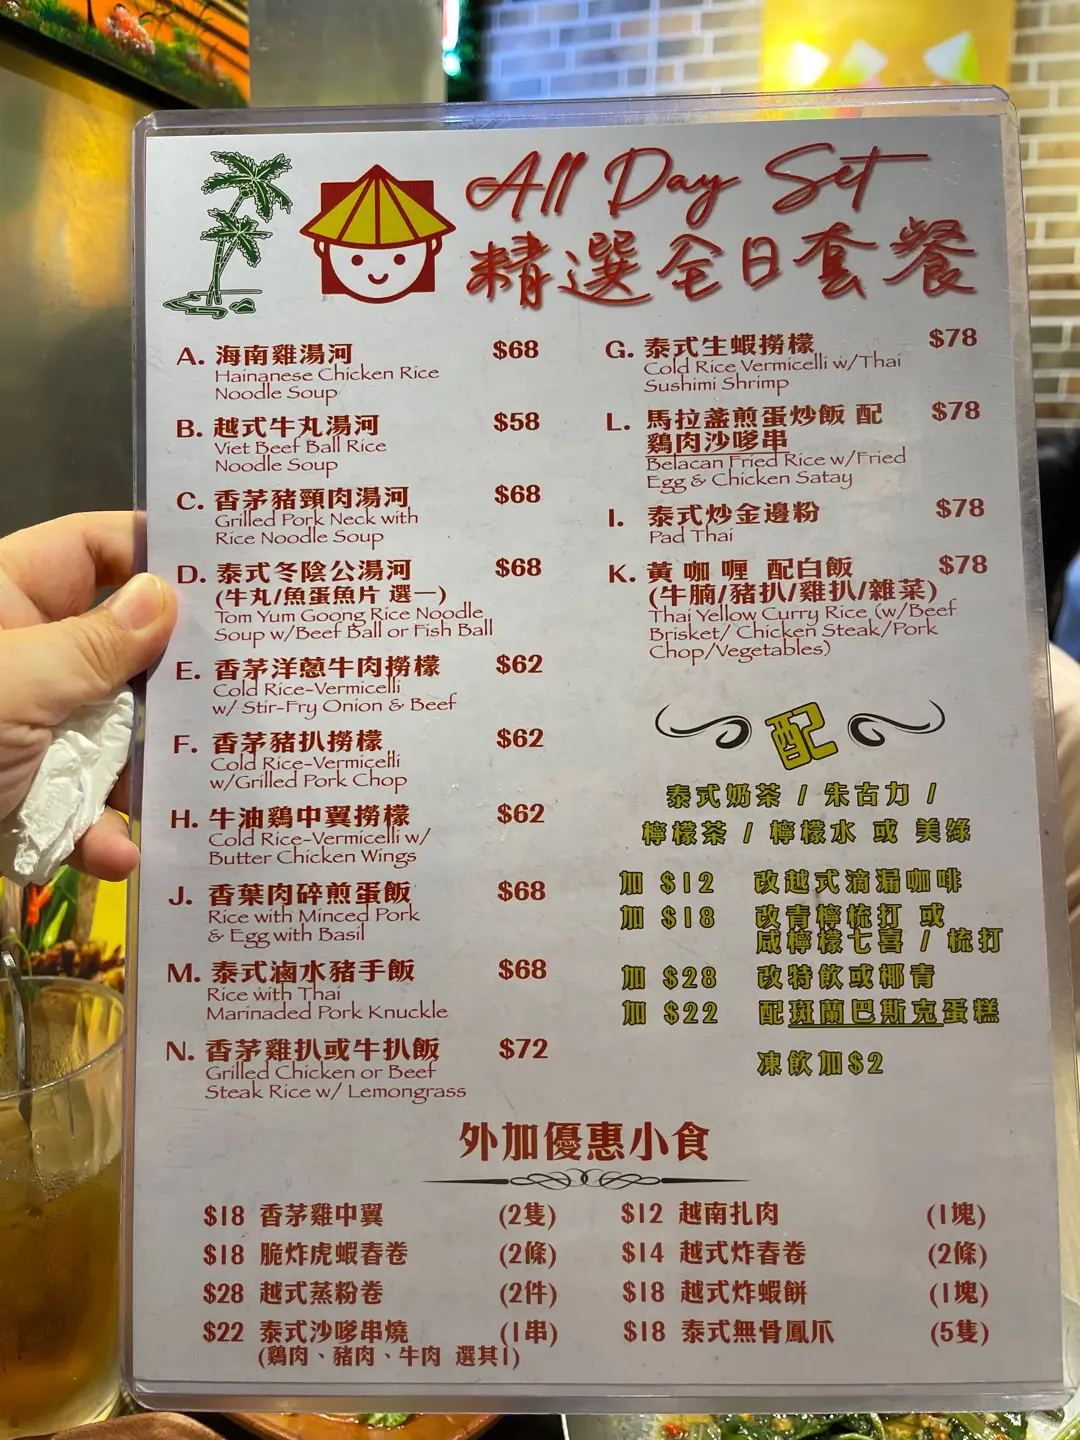 All Day Set
精選全日套餐
A. 海南雞湯河 $68
Hainanese Chicken Rice
Noodle Soup
B. 越式牛丸湯河 $58
Viet Beef Ball Rice
Noodle Soup
C. 香茅豬頸肉湯河 $68
Grilled Pork Neck with
Rice Noodle Soup
D. 泰式冬陰公湯河 $68
(牛丸/魚蛋魚片 選一)
Tom Yum Goong Rice Noodle
Soup w/Beef Ball or Fish Ball
E. 香茅洋蔥牛肉撈檬 $62
Cold Rice-Vermicelli
w/ Stir-Fry Onion & Beef
F. 香茅豬扒撈檬 $62
Cold Rice-Vermicelli
w/Grilled Pork Chop
H. 牛油鷄中翼撈檬 $62
Cold Rice-Vermicelli w/
Butter Chicken Wings
J. 香葉肉碎煎蛋飯 $68
Rice with Minced Pork
& Egg with Basil
M. 泰式滷水豬手飯 $68
Rice with Thai
Marinaded Pork Knuckle
N. 香茅雞扒或牛扒飯 $72
Grilled Chicken or Beef
Steak Rice w/ Lemongrass
G. 泰式生蝦撈檬 $78
Cold Rice Vermicelli w/Thai
Sushimi Shrimp
L. 馬拉盞煎蛋炒飯 配 $78
鷄肉沙嗲串
Belacan Fried Rice w/Fried
Egg & Chicken Satay
I. 泰式炒金邊粉 $78
Pad Thai
K. 黃咖喱 配白飯 $78
(牛腩/豬扒/雞扒/雜菜)
Thai Yellow Curry Rice (w/Beef
Brisket/ Chicken Steak/Pork
Chop/Vegetables)
配
泰式奶茶 / 朱古力 /
檸檬茶 / 檸檬水 或 美綠
加 $12 改越式滴漏咖啡
加 $18 改青檸梳打 或
咸檸檬七喜 / 梳打
加 $28 改特飲或椰青
加 $22 配斑蘭巴斯克蛋糕
凍飲加$2
外加優惠小食
$18 香茅雞中翼 (2隻)
$18 脆炸虎蝦春卷 (2條)
$28 越式蒸粉卷 (2件)
$22 泰式沙嗲串燒 (1串)
(鷄肉、豬肉、牛肉 選其1)
$12 越南扎肉 (1塊)
$14 越式炸春卷 (2條)
$18 越式炸蝦餅 (1塊)
$18 泰式無骨鳳爪 (5隻)